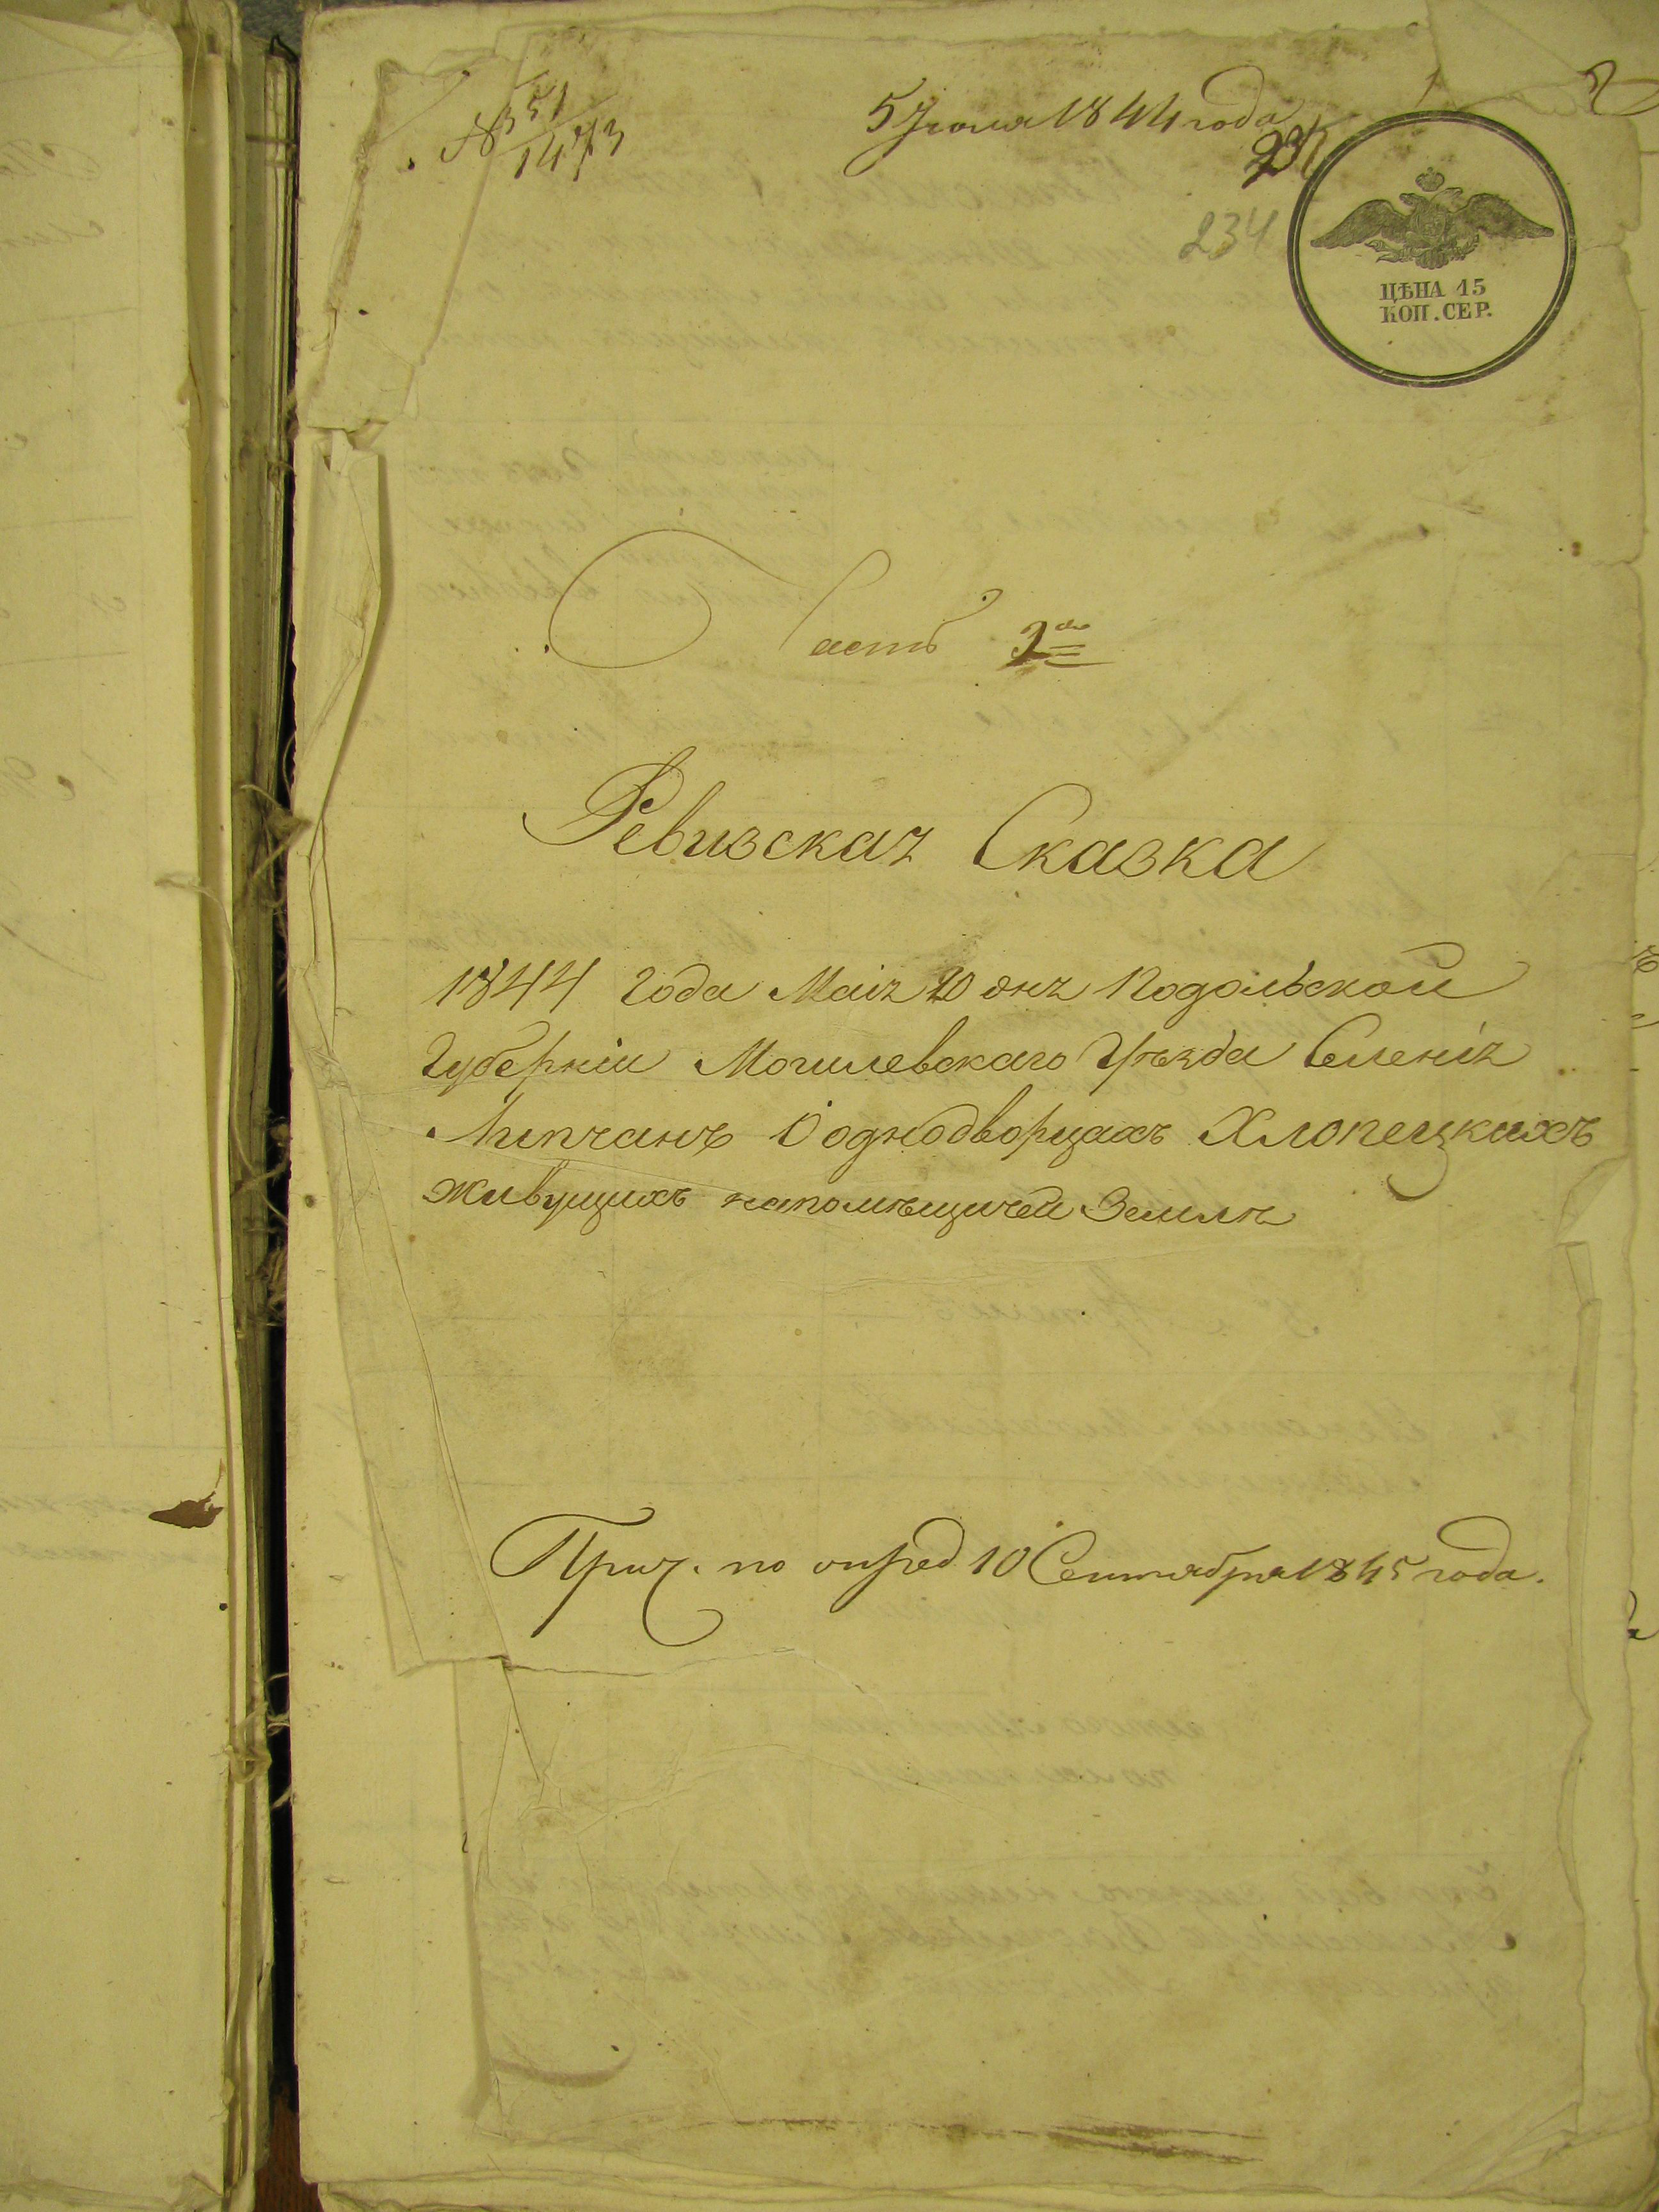 № 351
1473
5 Июля 1844 года
234
ЦѢНА 15
КОП. СЕР.
Часть 2ая
Ревизская Сказка
1844 Года Маія 20 дня Подольской
Губерніи Могилевскаго Уѣзда Селенія
Липчанъ О однодворцахъ Хлопецкихъ
живущихъ на помѣщичей Землѣ
Прич. по опред 10 Сентября 1845 года.